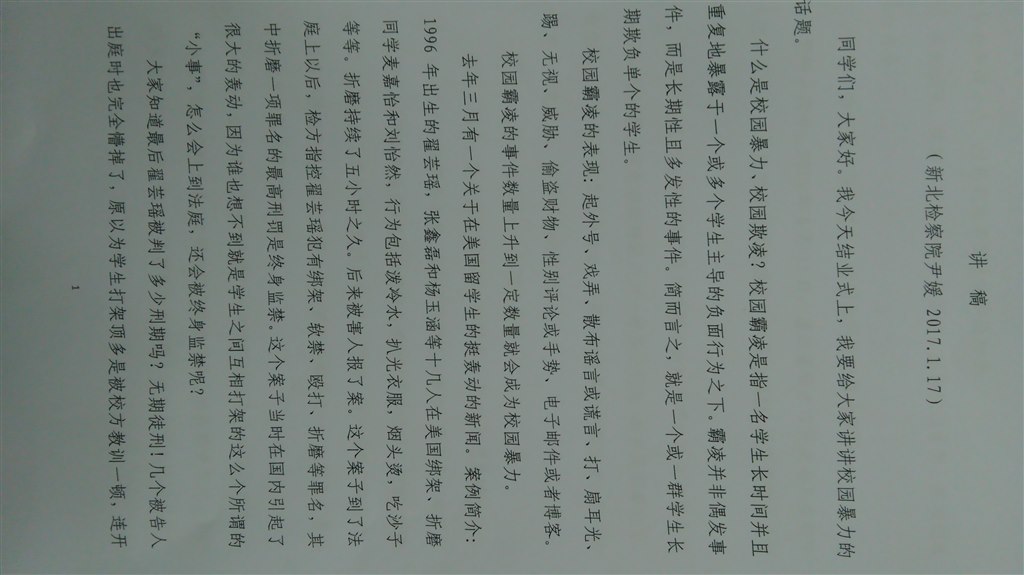 讲 稿
（新北检察院尹媛 2017.1.17）
同学们，大家好。我今天结业式上，我要给大家讲讲校园暴力的
话题。
什么是校园暴力、校园欺凌？校园霸凌是指一名学生长时间并且
重复地暴露于一个或多个学生主导的负面行为之下。霸凌并非偶发事
件，而是长期性且多发性的事件。简而言之，就是一个或一群学生长
期欺负单个的学生。
校园霸凌的表现：起外号、戏弄、散布谣言或谎言、打、扇耳光、
踢、无视、威胁、偷盗财物、性别评论或手势、电子邮件或者博客。
校园霸凌的事件数量上升到一定数量就会成为校园暴力。
去年三月有一个关于在美国留学生的挺轰动的新闻。案例简介：
1996 年出生的翟芸瑶，张鑫磊和杨玉涵等十几人在美国绑架、折磨
同学麦嘉怡和刘怡然，行为包括泼冷水，扒光衣服，烟头烫，吃沙子
等等。折磨持续了五小时之久。后来被害人报了案。这个案子到了法
庭上以后，检方指控翟芸瑶犯有绑架、软禁、殴打、折磨等罪名，其
中折磨一项罪名的最高刑罚是终身监禁。这个案子当时在国内引起了
很大的轰动，因为谁也想不到就是学生之间互相打架的这么个所谓的
“小事”，怎么会上到法庭，还会被终身监禁呢？
大家知道最后翟芸瑶被判了多少刑期吗？无期徒刑！几个被告人
出庭时也完全懵掉了，原以为学生打架顶多是被校方教训一顿，连开
1